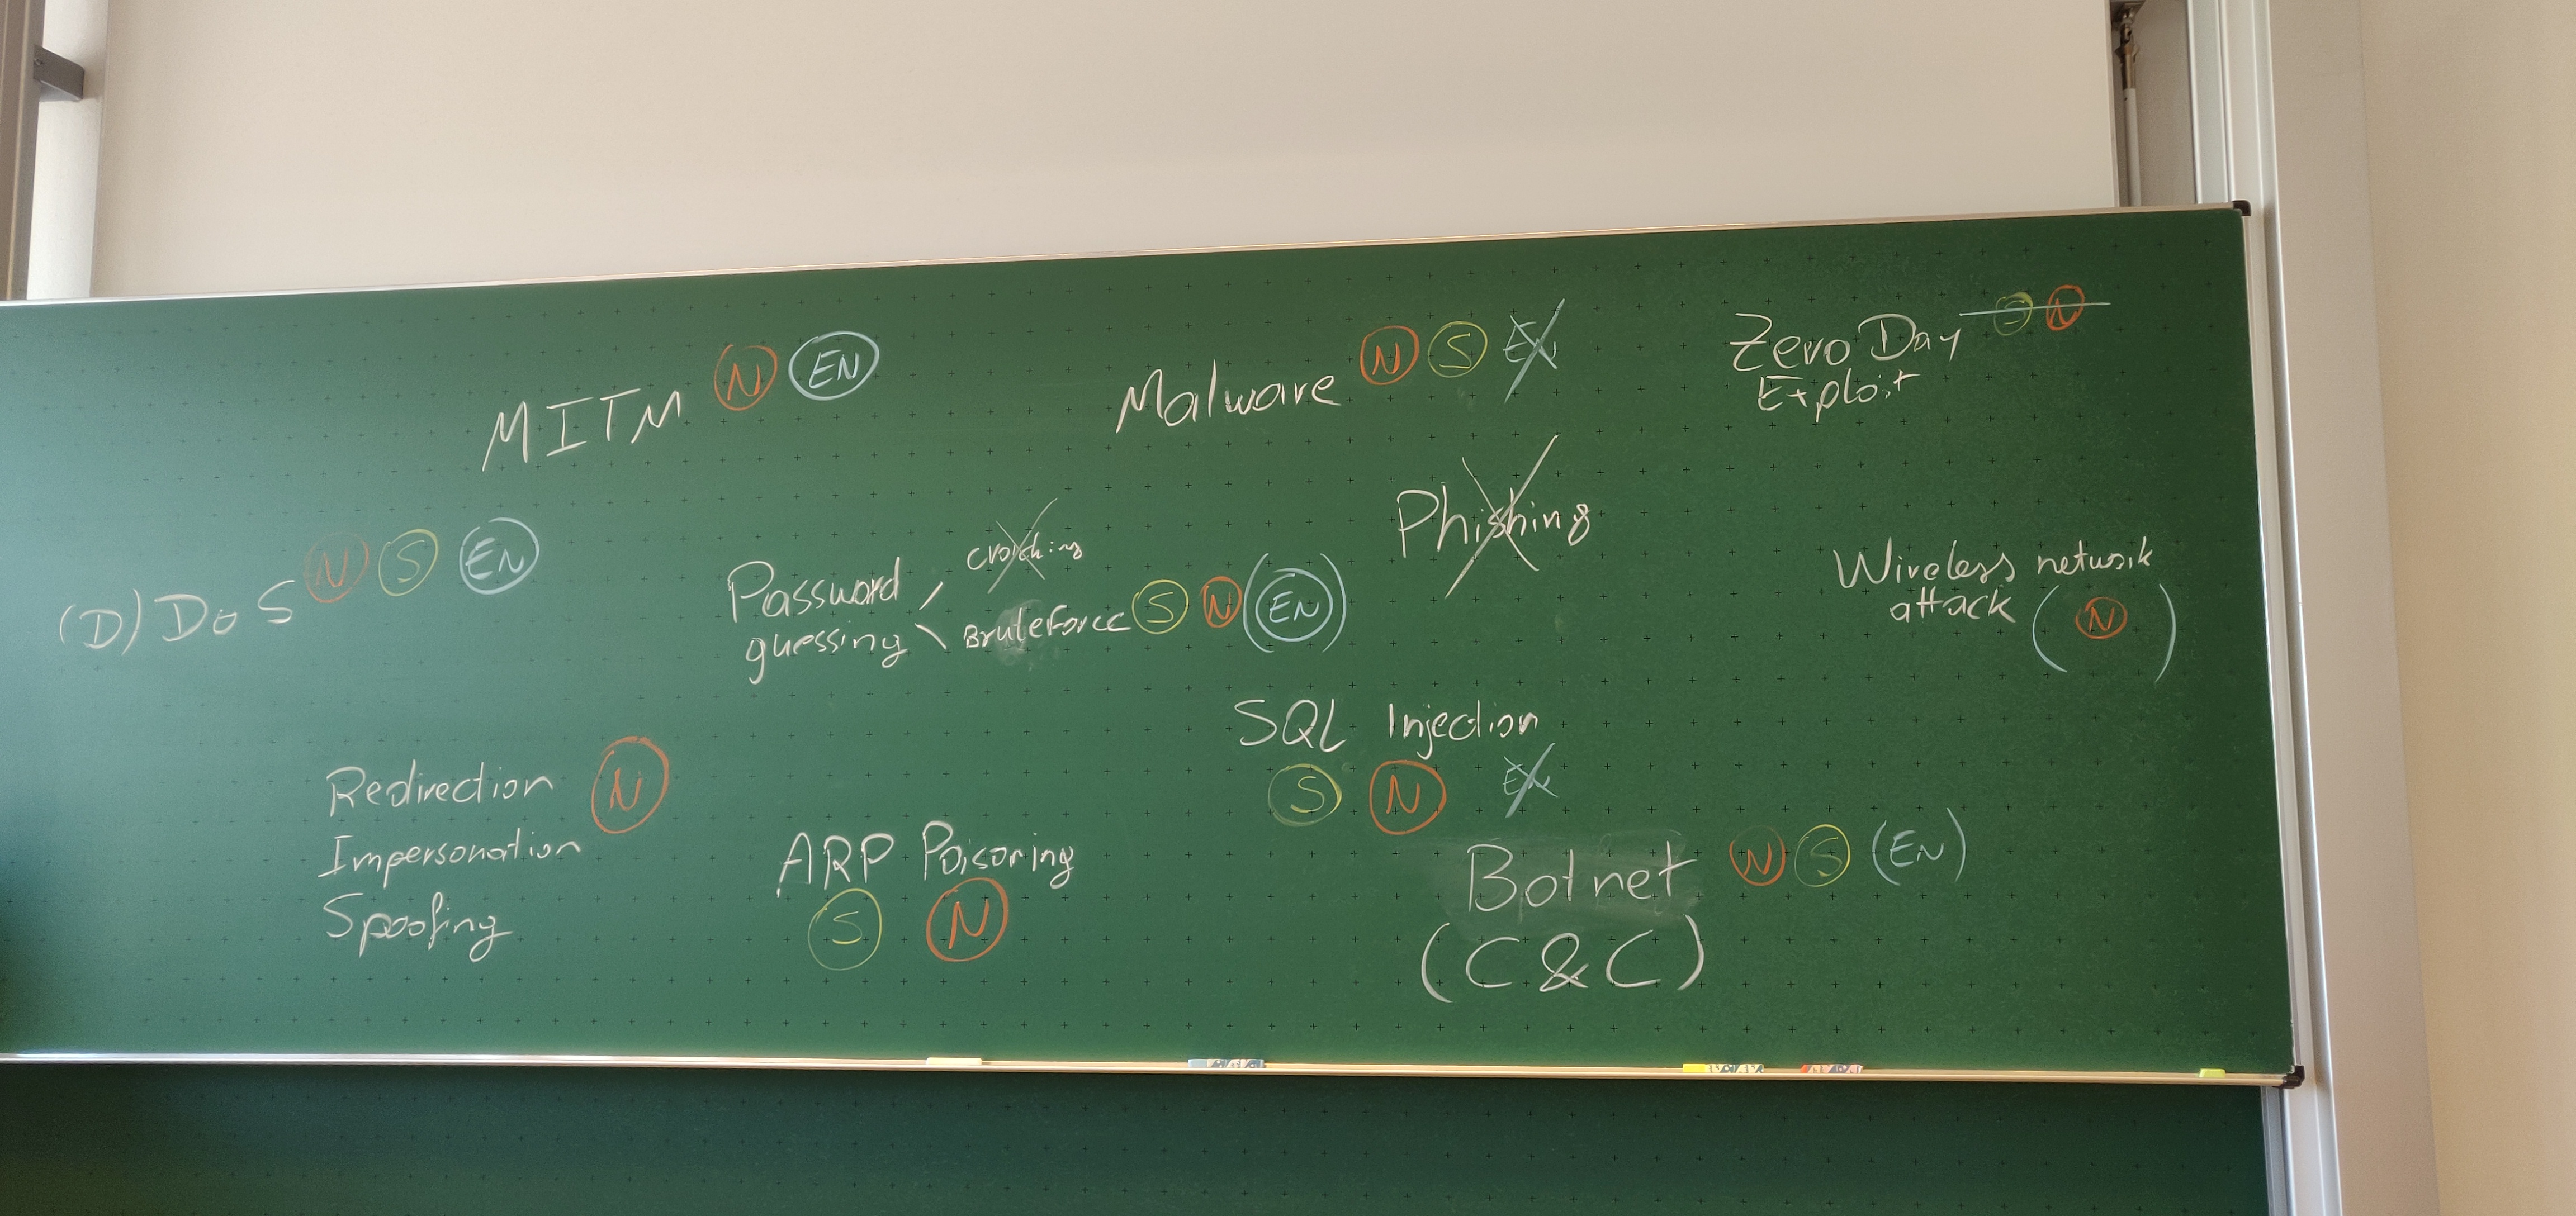 MITM N EN
Malware N S EN
Zero Day S N
Exploit
(D)DoS N S EN
Password
guessing
cracking
Bruteforce S N (EN)
Phishing
Wireless network
attack (N)
Redirection N
Impersonation
Spoofing
ARP Poisoning
S N
SQL Injection
S N EN
Botnet N S (EN)
(C&C)